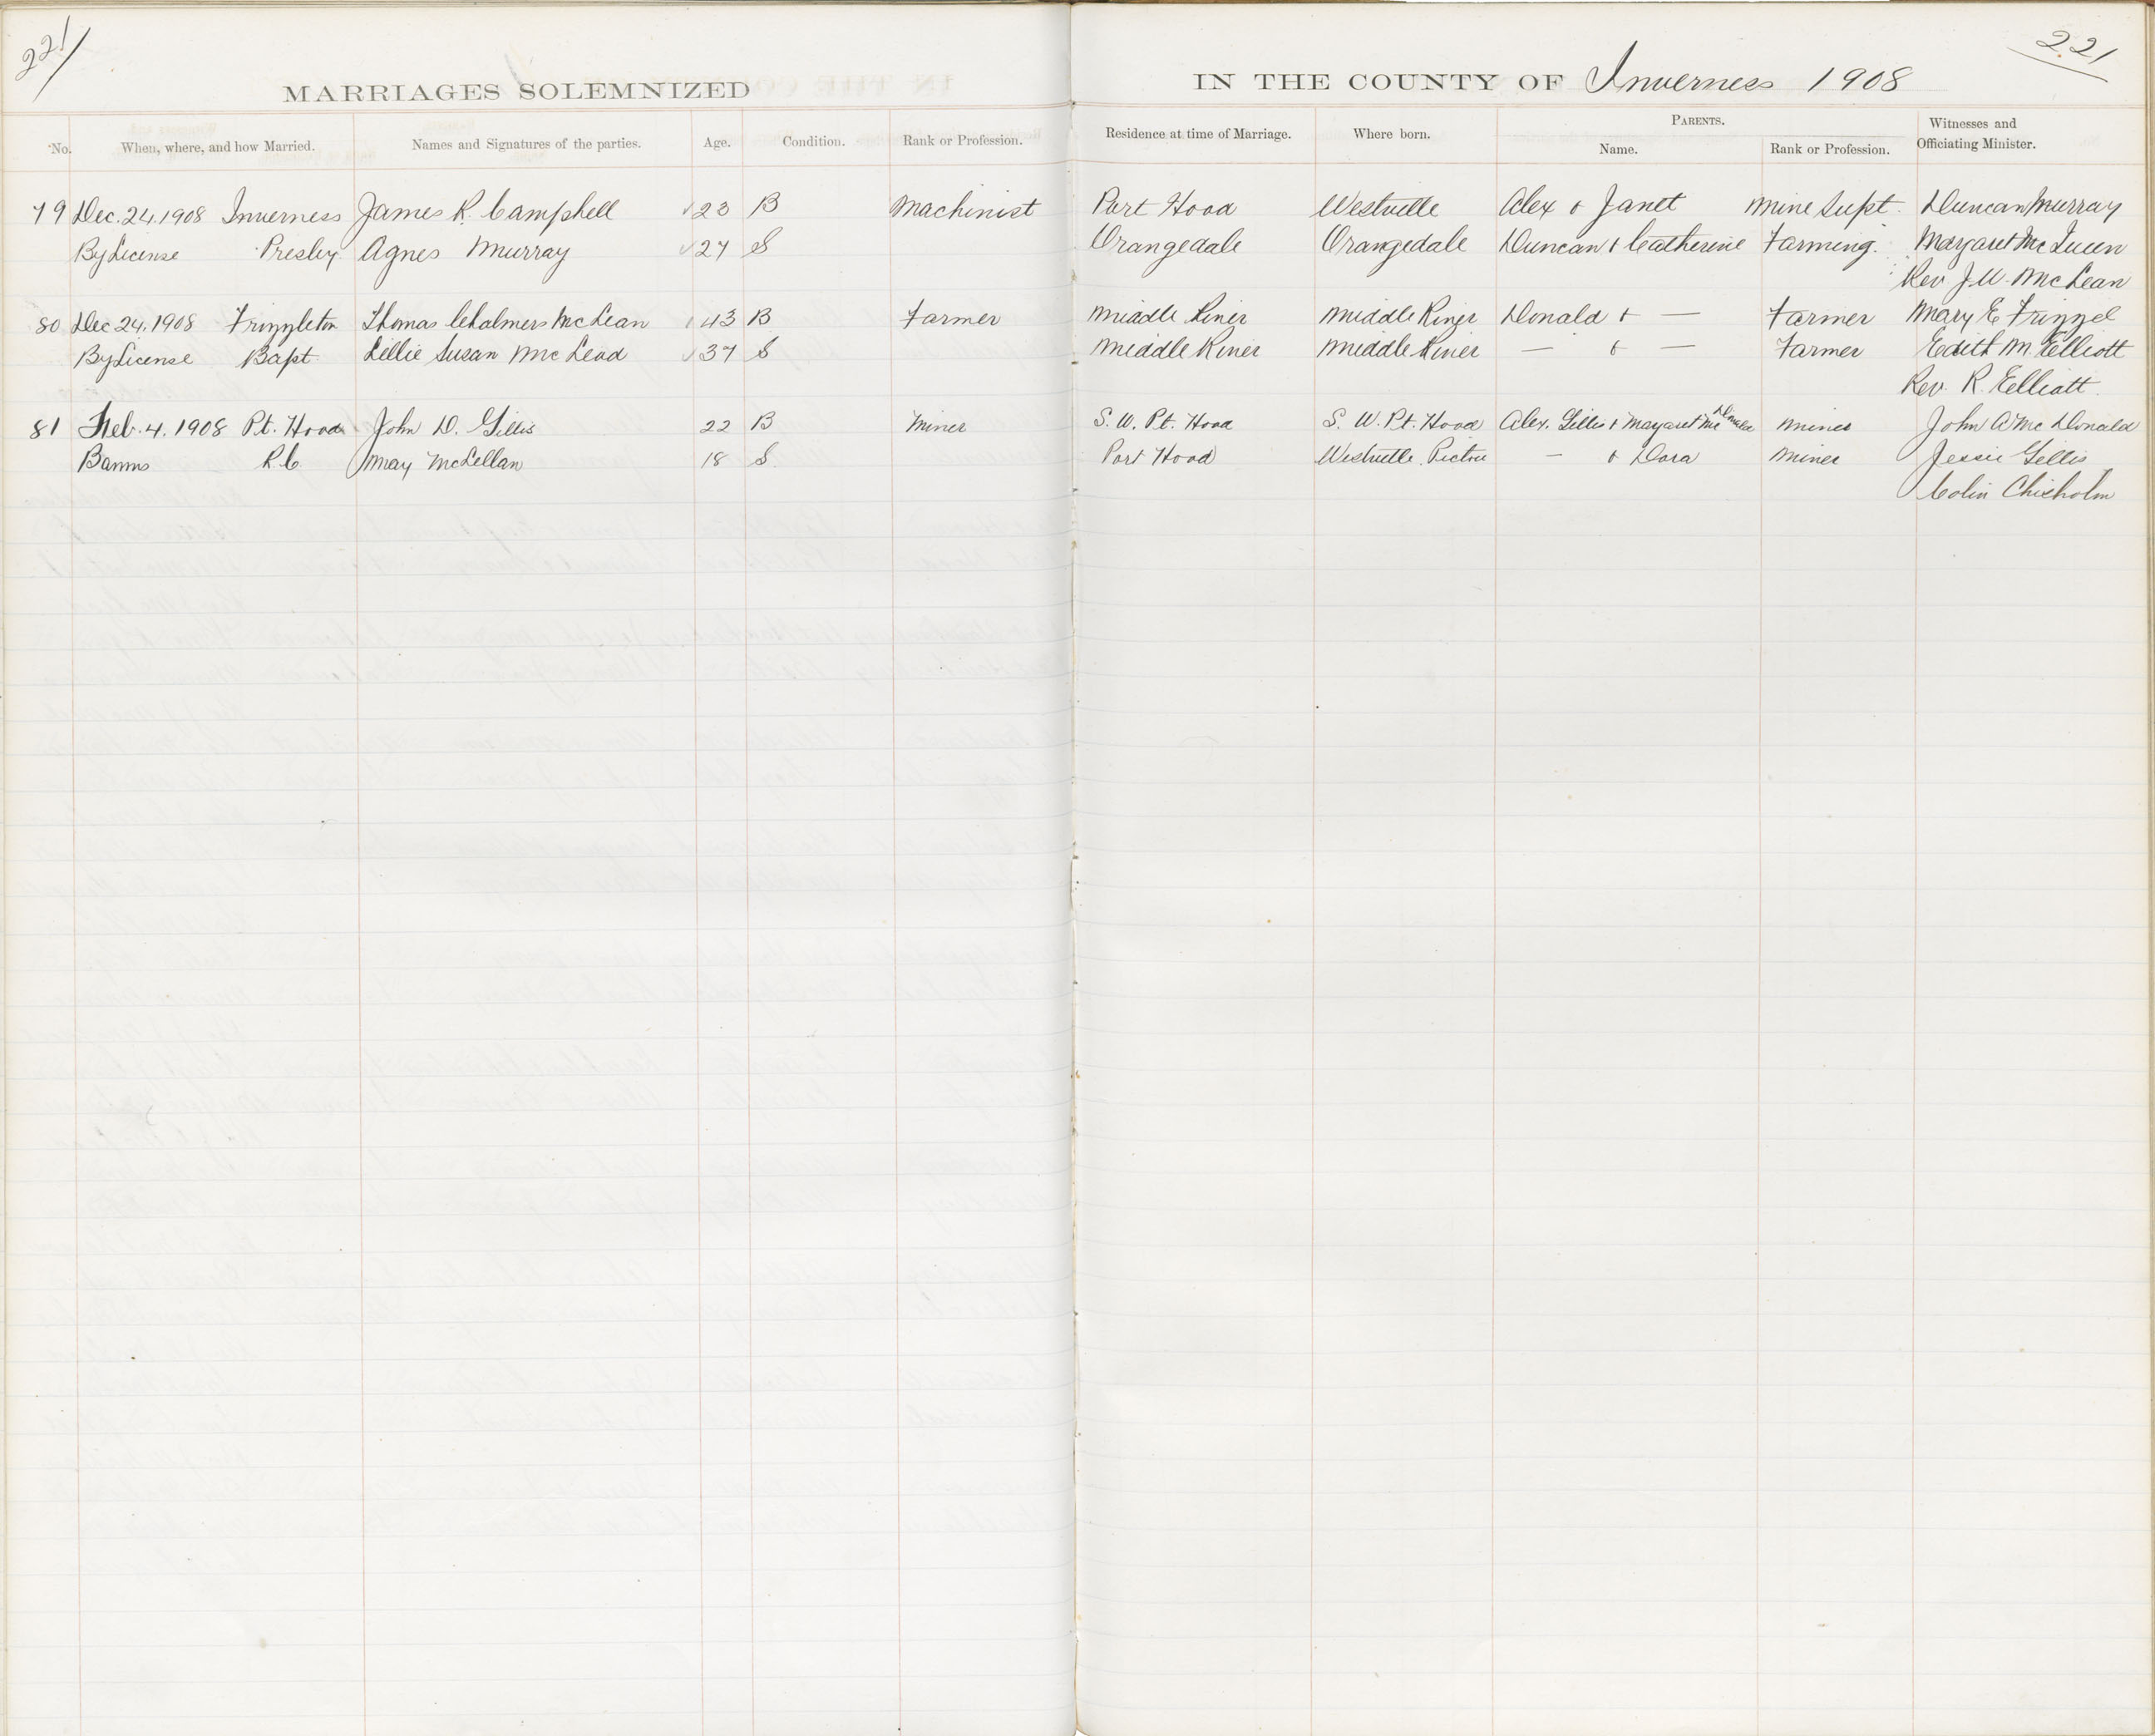 221 221
MARRIAGES SOLEMNIZED IN THE COUNTY OF Inverness 1908
No. When, where, and how Married. Names and Signatures of the parties. Age. Condition. Rank or Profession. Residence at time of Marriage. Where born. PARENTS. Name. Rank or Profession. Witnesses and Officiating Minister.
79 Dec. 24. 1908 Inverness James R. Campbell 23 B Machinist Port Hood Westville Alex & Janet Mine Supt. Duncan Murray
By License Presby Agnes Murray 27 S Orangedale Orangedale Duncan & Catherine Farming. Margaret McQueen
Rev J. W. McLean
80 Dec 24. 1908 Frizzleton Thomas Chalmers McLean 43 B Farmer Middle River Middle River Donald & — Farmer Mary E Frizzel
By License Bapt Lillie Susan McLeod 37 S Middle River Middle River — & — Farmer Edith M. Elliott
Rev. R. Elliott.
81 Feb. 4. 1908 Pt. Hood John D. Gillis 22 B Miner S. W. Pt. Hood S. W. Pt. Hood Alex. Gillis & Margaret McDonald Miner John A McDonald
Banns R.C. May McLellan 18 S. Port Hood Westville. Pictou — & Dora Miner Jessie Gillis
Colin Chisholm